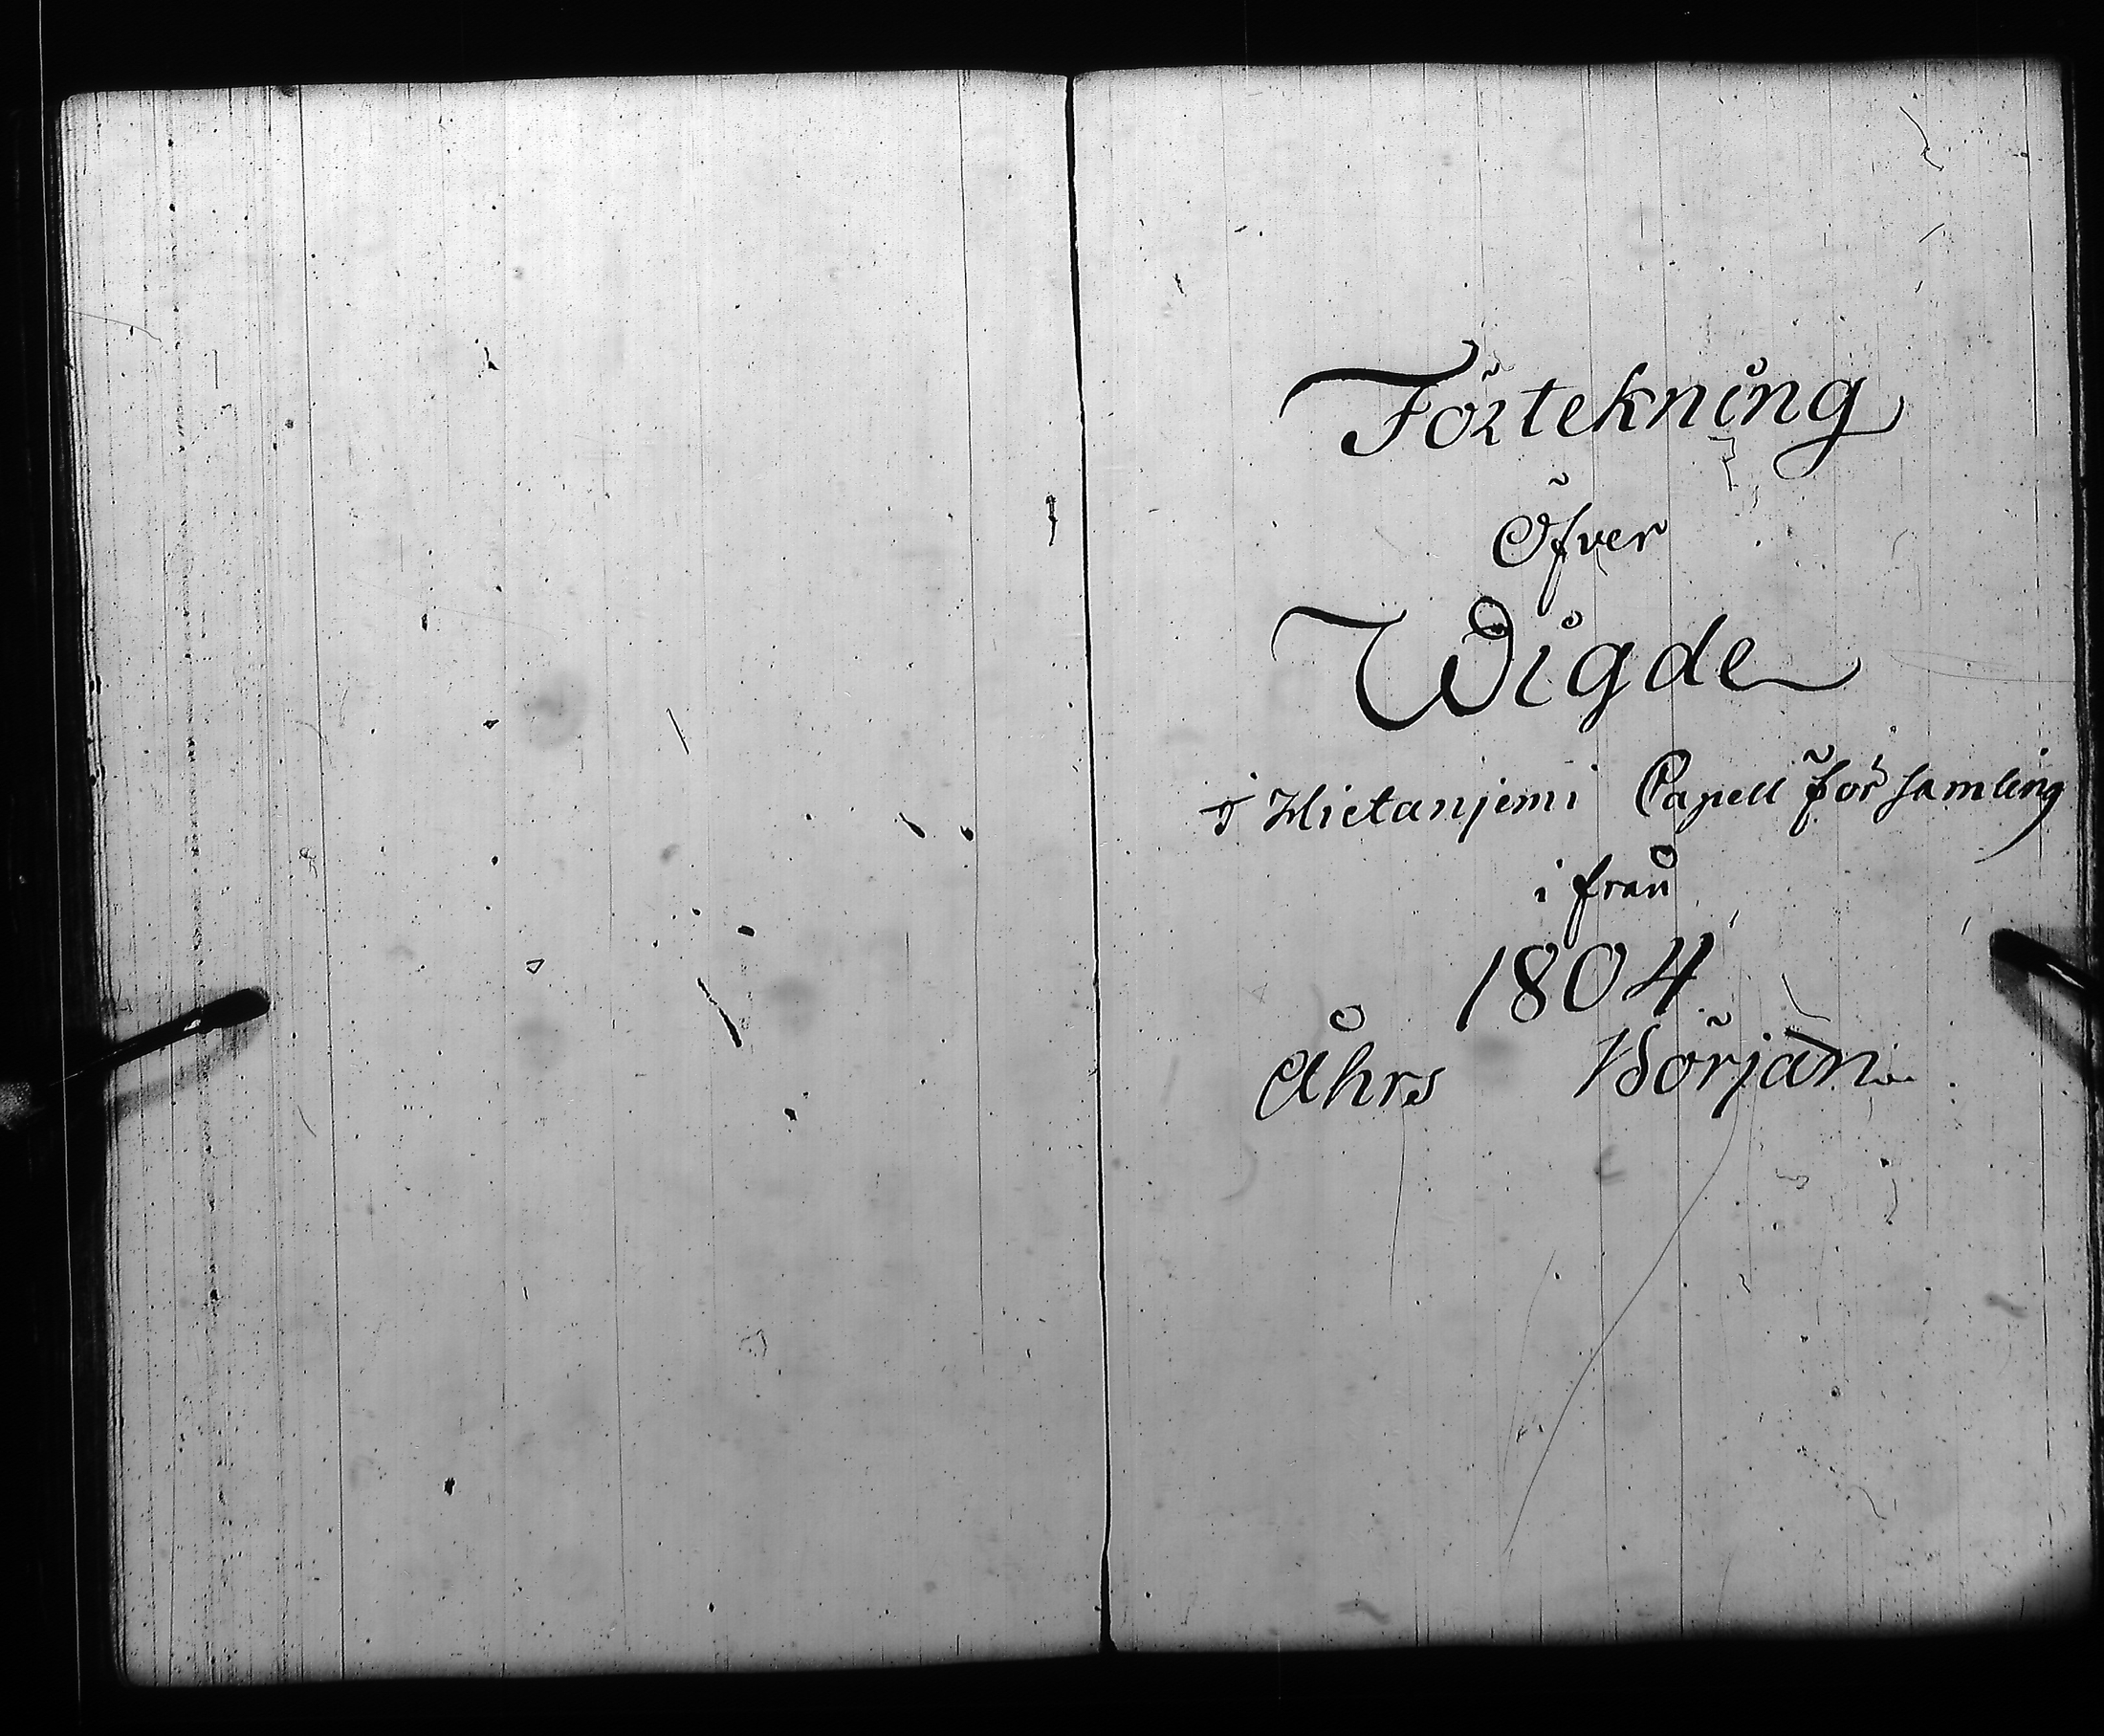 Förtekning
Öfver
Wigde
i Hietanjemi Capell för samling
i från
1804
Åhrs Början